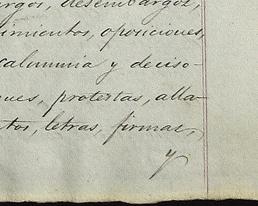 argos, desembargoz,
dimientos, oposiciones,
calumnia y deciso-
ques, protestas, alla-
tos, letras, firmar,
y